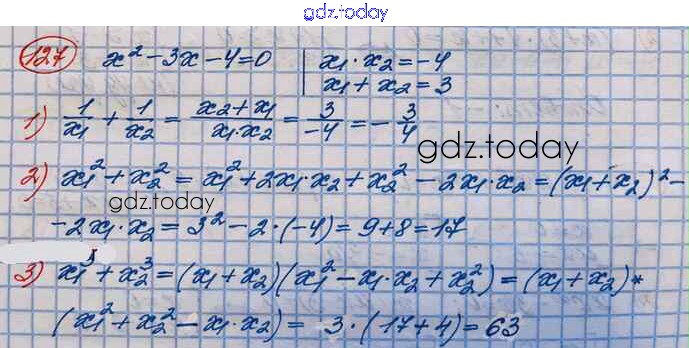 gdz.today
127 x² - 3x - 4 = 0 | x₁ · x₂ = -4
x₁ + x₂ = 3
1) 1/x₁ + 1/x₂ = (x₂ + x₁)/(x₁ · x₂) = 3/-4 = -3/4
gdz.today
2) x₁² + x₂² = x₁² + 2x₁ · x₂ + x₂² - 2x₁ · x₂ = (x₁ + x₂)² -
gdz.today
- 2x₁ · x₂ = 3² - 2 · (-4) = 9 + 8 = 17
3) x₁³ + x₂³ = (x₁ + x₂)(x₁² - x₁ · x₂ + x₂²) = (x₁ + x₂) *
(x₁² + x₂² - x₁ · x₂) = 3 · (17 + 4) = 63